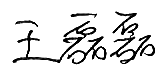 王磊磊